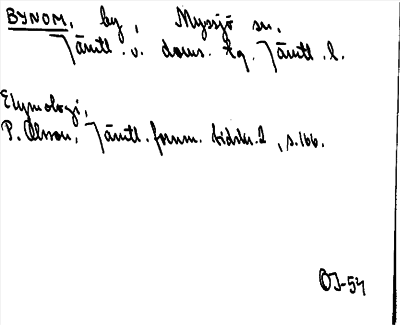 BYNOM, by, Myssjö sn,
Jämtl. v. doms. tg. Jämtl. l.
Etymologi,
P. Olsson, Jämtl. fornm. tidskr. 2, s. 166.
OJ-54